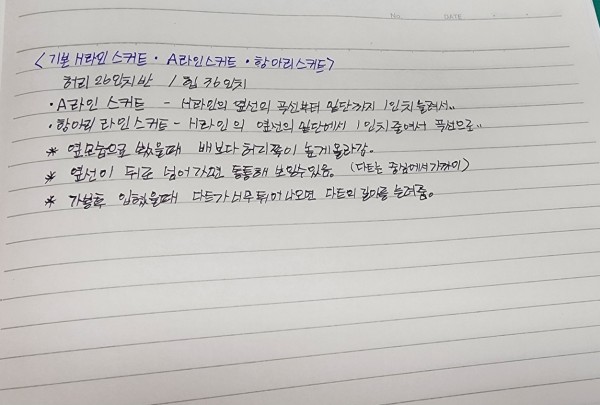 No. DATE
<기본 H라인 스커트 · A라인스커트 · 항아리스커트>
허리 26인치 반 / 힙 36인치
· A라인 스커트 - H라인의 옆선의 곡선부터 밑단까지 1인치 늘려서..
· 항아리 라인스커트 - H라인의 옆선의 밑단에서 1인치 줄여서 곡선으로..
* 옆모습으로 봤을때 배보다 허리쪽이 높게올라감.
* 옆선이 뒤로 넘어가면 뚱뚱해 보일수있음. (다트는 중심에서 가까이)
* 가봉후 입혔을때 다트가 너무 튀어나오면 다트의 길이를 늘려줌.